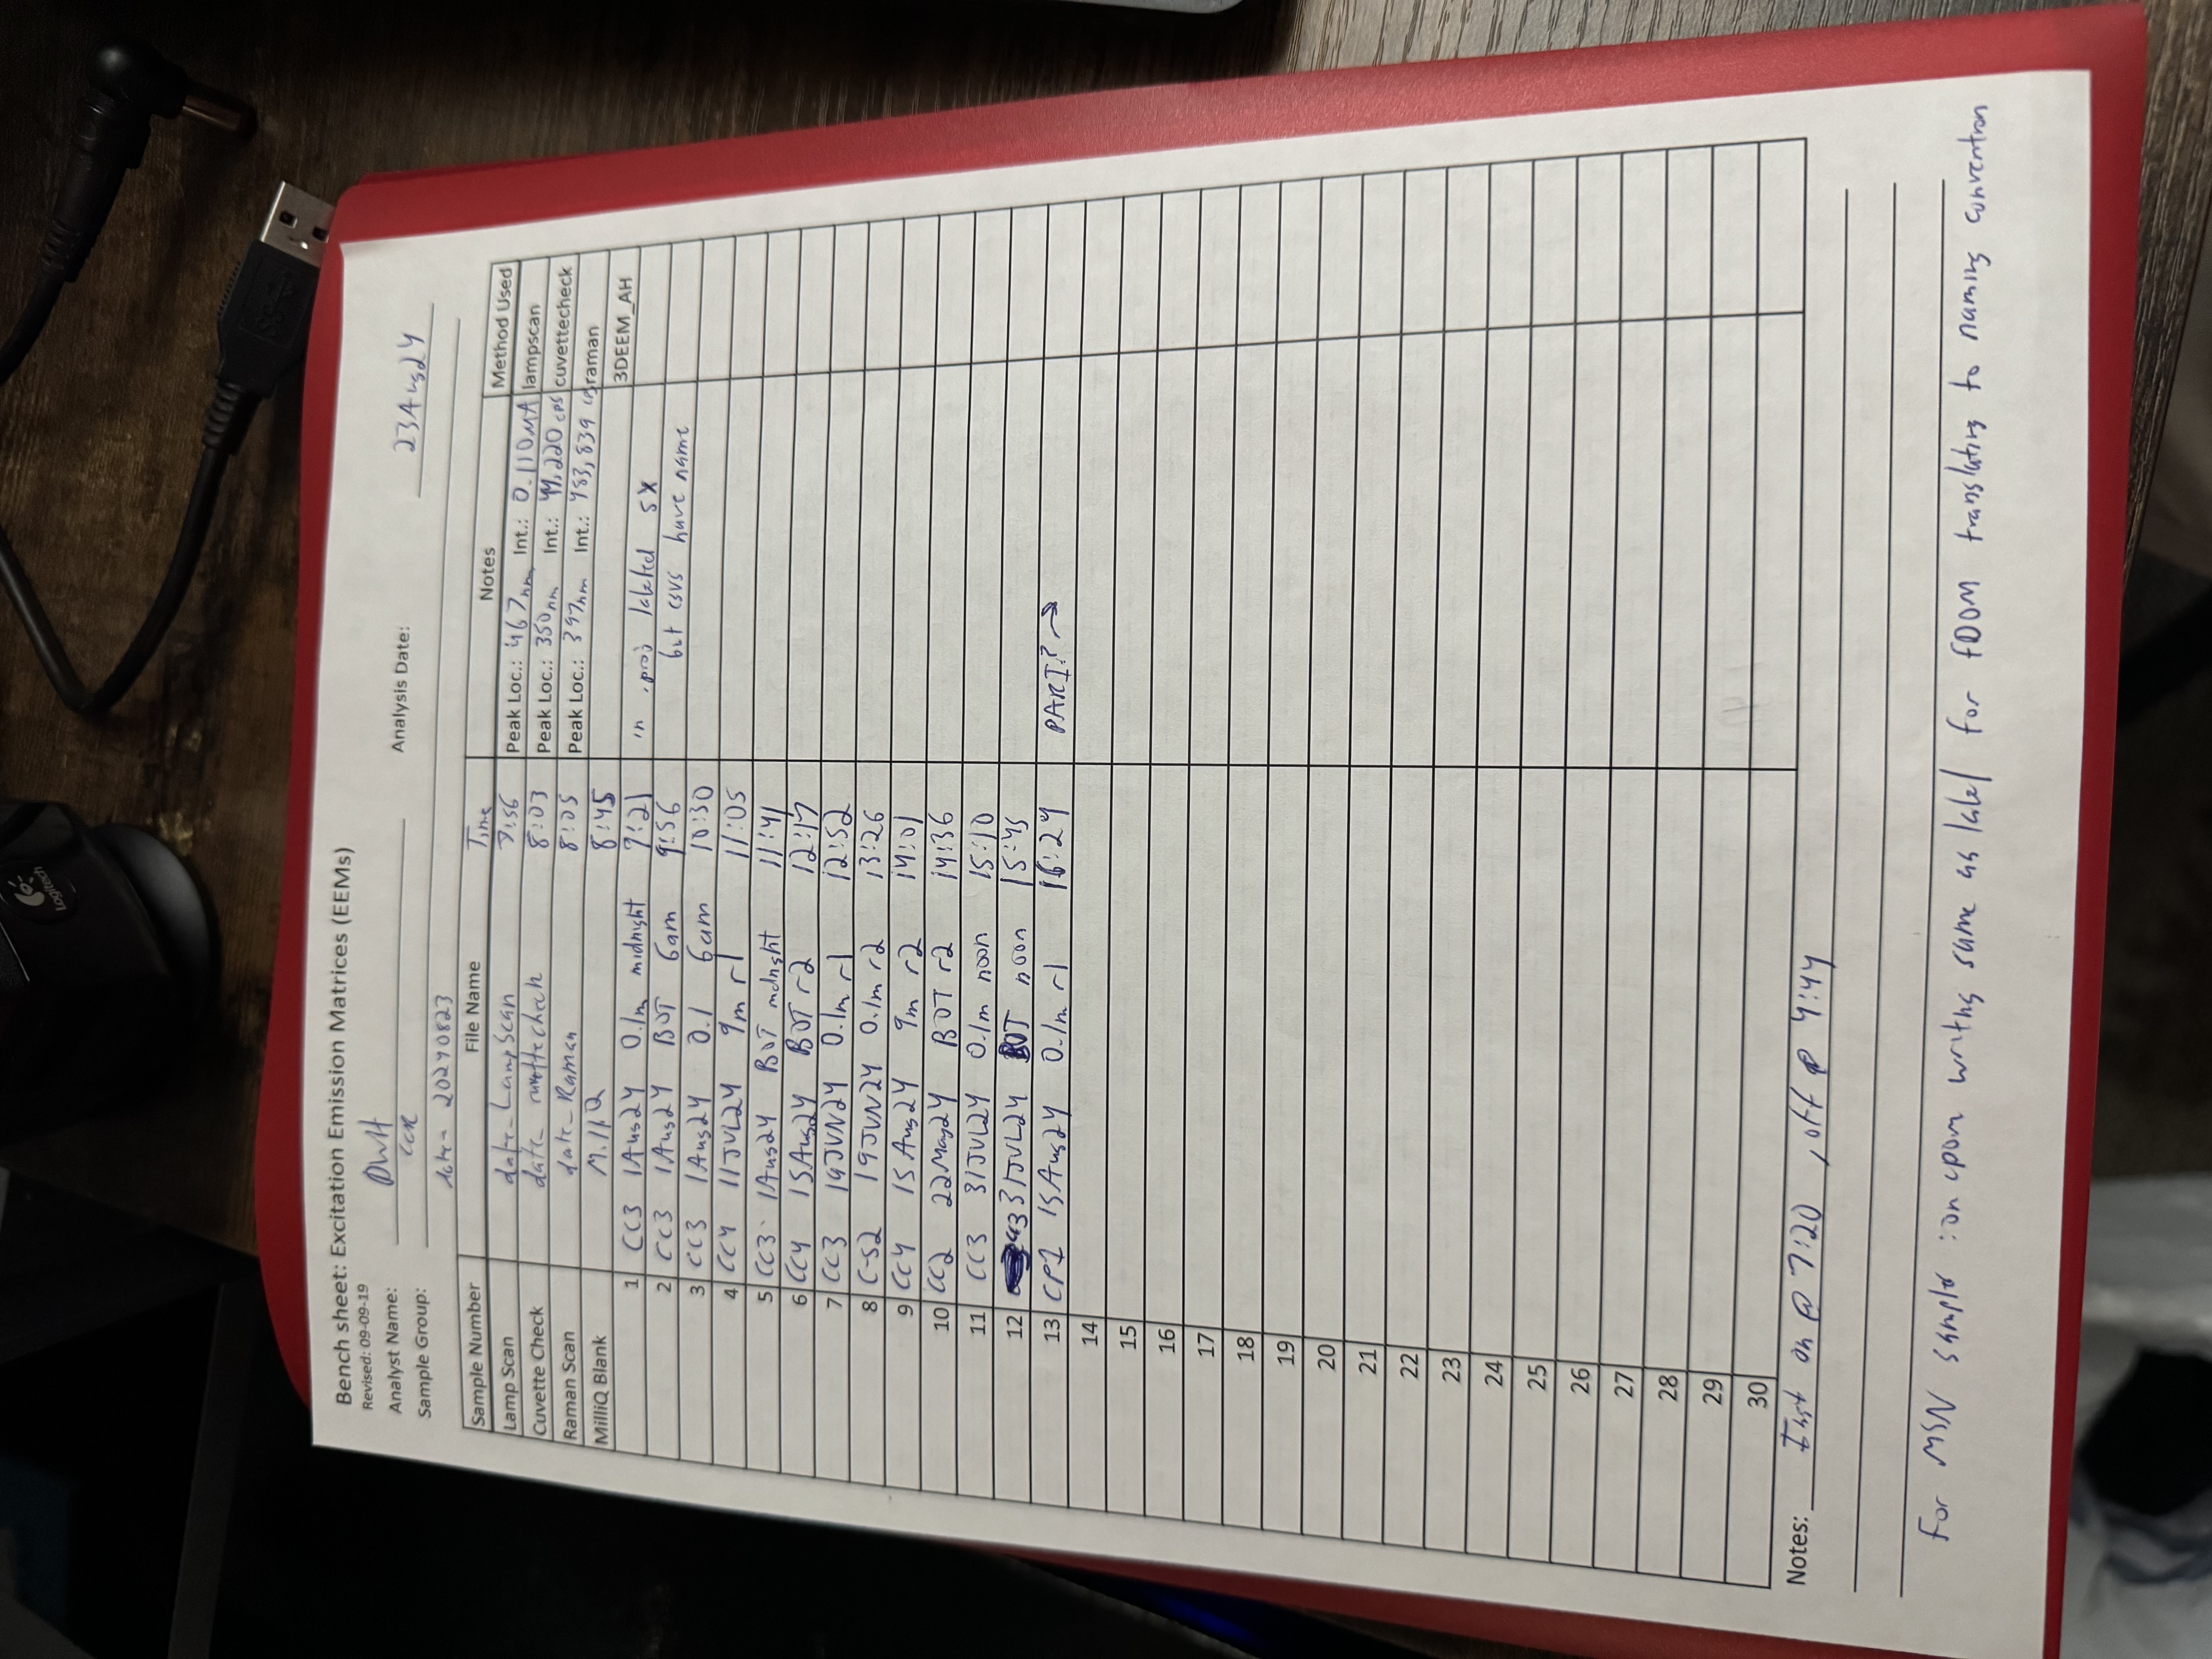 Logitech
Bench sheet: Excitation Emission Matrices (EEMs)
Revised: 09-09-19
Analyst Name: DWH Analysis Date: 23Aug24
Sample Group: CCR
date = 20240823
Sample Number File Name Time Notes Method Used
Lamp Scan date_LampScan 7:56 Peak Loc.: 467nm Int.: 0.110MA lampscan
Cuvette Check date_cuvettecheck 8:03 Peak Loc.: 350nm Int.: 44,220 cps cuvettecheck
Raman Scan date_Raman 8:05 Peak Loc.: 397nm Int.: 483,839 raman
MilliQ Blank MilliQ 8:45 3DEEM_AH
1 CC3 1Aug24 0.1m midnight 9:21 in .proj labeled SX
2 CC3 1Aug24 BOT 6am 9:56 but csvs have name
3 CC3 1Aug24 0.1 6am 10:30
4 CC4 11JUL24 9m r1 11:05
5 CC3 1Aug24 BOT mdnght 11:41
6 CC4 15Aug24 BOT r2 12:17
7 CC3 19JUN24 0.1m r1 12:52
8 19JUN24 0.1m r2 13:26
9 CC4 15Aug24 9m r2 14:01
10 CC2 22May24 BOT r2 14:36
11 CC3 31JUL24 0.1m noon 15:10
12 31JUL24 BOT noon 15:45
13 CP1 15Aug24 0.1m r1 16:24
14
15
16
17
18
19
20
21
22
23
24
25
26
27
28
29
30
Notes: Inst on @ 7:20 , off @ 4:44
For MSN sample : on cpom writing same as label for fDOM translating to naming convention